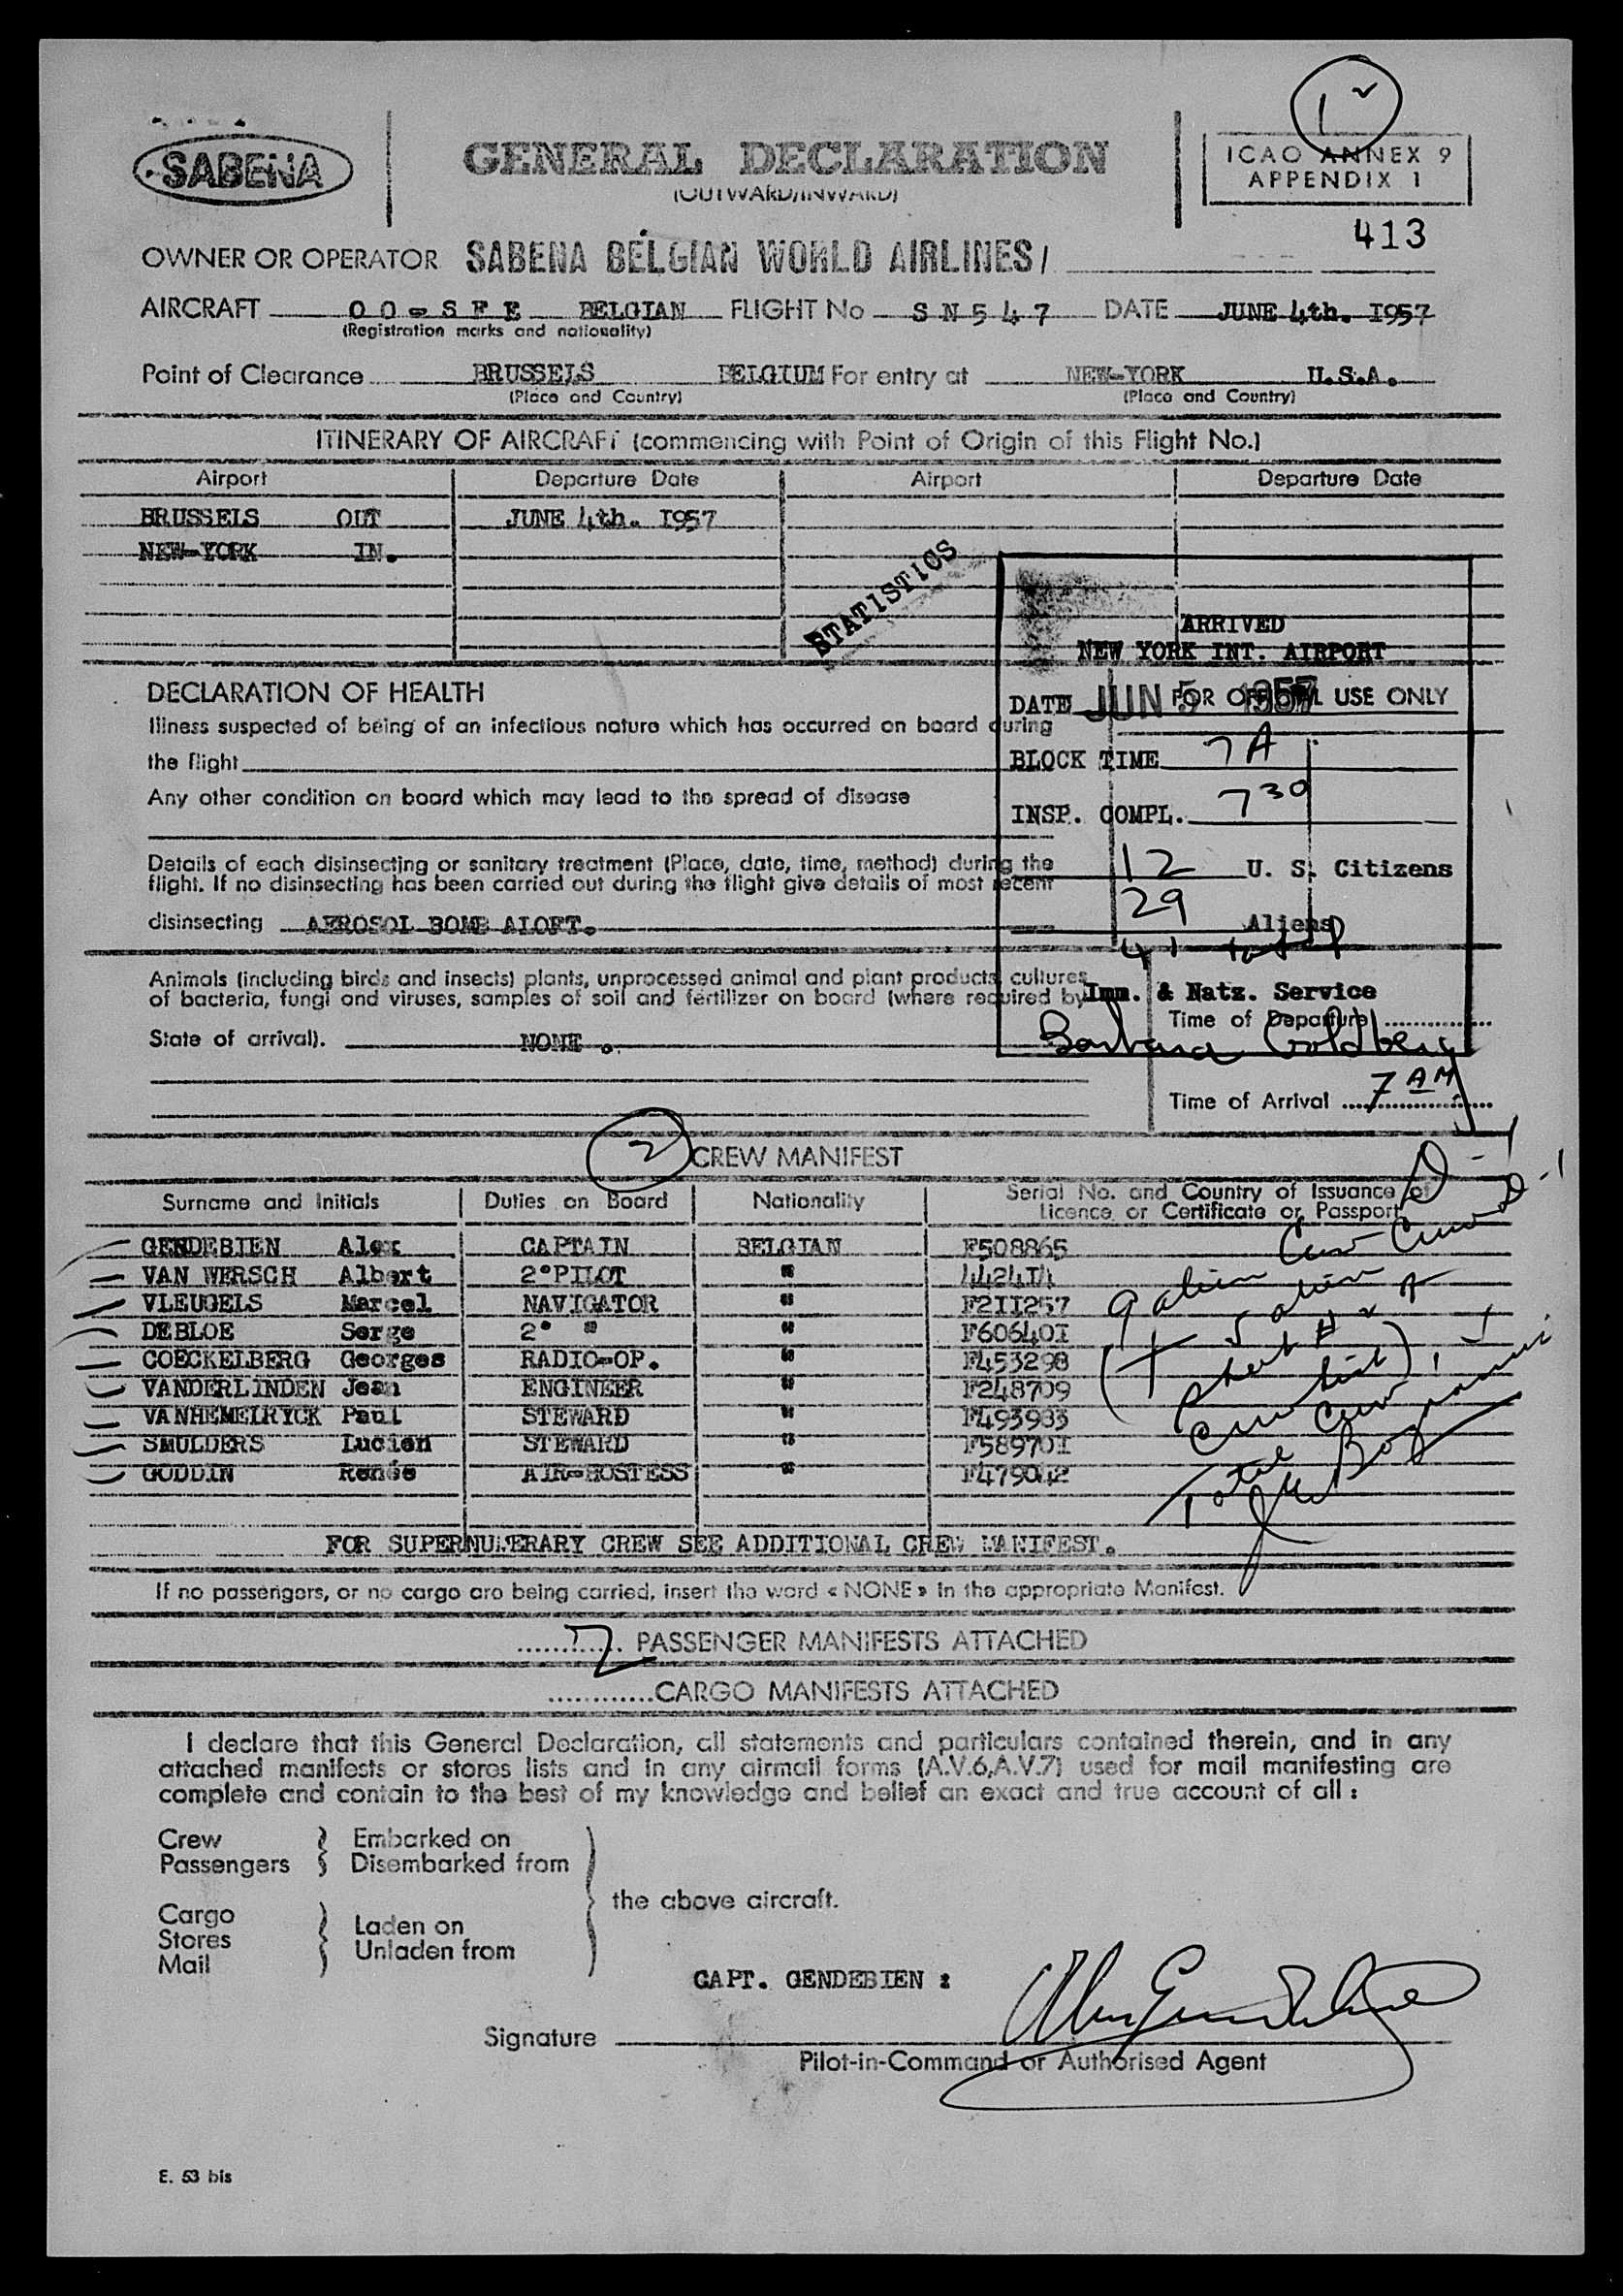 1
SABENA
GENERAL DECLARATION
(OUTWARD/INWARD)
ICAO ANNEX 9
APPENDIX 1
413
OWNER OR OPERATOR SABENA BELGIAN WORLD AIRLINES/
AIRCRAFT OO-SFE BELGIAN FLIGHT No SN547 DATE JUNE 4th. I957
(Registration marks and nationality)
Point of Clearance BRUSSELS BELGIUM For entry at NEW-YORK U.S.A.
(Place and Country) (Place and Country)
ITINERARY OF AIRCRAFT (commencing with Point of Origin of this Flight No.)
Airport Departure Date Airport Departure Date
BRUSSELS OUT JUNE 4th. I957
NEW-YORK IN.
STATISTICS
ARRIVED
NEW YORK INT. AIRPORT
DATE JUN 5 1957
FOR OFFICIAL USE ONLY
BLOCK TIME 7A
INSP. COMPL. 7 30
12 U. S. Citizens
29 Aliens
41 total
Imm. & Natz. Service
Barbara Goldberg
DECLARATION OF HEALTH
Illness suspected of being of an infectious nature which has occurred on board during
the flight
Any other condition on board which may lead to the spread of disease
Details of each disinsecting or sanitary treatment (Place, date, time, method) during the
flight. If no disinsecting has been carried out during the flight give details of most recent
disinsecting AEROSOL BOMB ALOFT.
Animals (including birds and insects) plants, unprocessed animal and plant products, cultures
of bacteria, fungi and viruses, samples of soil and fertilizer on board (where required by
State of arrival). NONE .
Time of Departure
Time of Arrival 7 AM
2
CREW MANIFEST
Surname and Initials Duties on Board Nationality Serial No. and Country of Issuance of
Licence or Certificate or Passport
GENDEBIEN Alex CAPTAIN BELGIAN F508865
VAN WERSCH Albert 2°PILOT " 4424I4
VLEUGELS Marcel NAVIGATOR " F2II257
DEBLOE Serge 2° " " F60640I
COECKELBERG Georges RADIO-OP. " F453298
VANDERLINDEN Jean ENGINEER " F248709
VANHEMELRYCK Paul STEWARD " F493933
SMULDERS Lucien STEWARD " F58970I
GODDIN Renée AIR-HOSTESS " F479042
9 alien Crew
Total Crew
FOR SUPERNUMERARY CREW SEE ADDITIONAL CREW MANIFEST.
If no passengers, or no cargo are being carried, insert the word « NONE » in the appropriate Manifest.
2 PASSENGER MANIFESTS ATTACHED
CARGO MANIFESTS ATTACHED
I declare that this General Declaration, all statements and particulars contained therein, and in any
attached manifests or stores lists and in any airmail forms (A.V.6,A.V.7) used for mail manifesting are
complete and contain to the best of my knowledge and belief an exact and true account of all :
Crew Embarked on
Passengers Disembarked from
the above aircraft.
Cargo
Stores Laden on
Mail Unladen from
CAPT. GENDEBIEN :
Signature
Pilot-in-Command or Authorised Agent
E. 53 bis